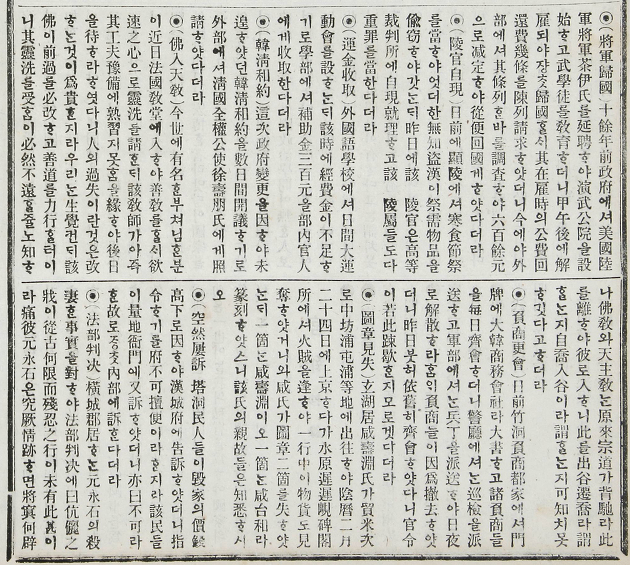 ◉(將軍歸國)十餘年前政府에셔美國陸
軍將軍茶伊氏를延聘ᄒᆞ야演武公院을設
始ᄒᆞ고武學徒를敎育ᄒᆞ더니甲午後에解
雇되야쟝ᄎᆞᆺ歸國ᄒᆞᆯᄉᆡ其在雇時의公費回
還費幾條를陳列請求ᄒᆞ얏더니今에야外
部에셔其條列ᄒᆞᆫ바를調査ᄒᆞ야六百餘元
으로減定ᄒᆞ야從便回國케ᄒᆞ얏다더라
◉(陵官自現)日前에顯陵에셔寒食節祭
를當ᄒᆞ야엇더ᄒᆞᆫ無知盜漢이祭需物品을
偸竊ᄒᆞ야갓ᄂᆞᆫᄃᆡ昨日에該 陵官은高等
裁判所에自現就理ᄒᆞ고該 陵屬들도다
重罪를當ᄒᆞᆫ다더라
◉(運金收取)外國語學校에셔日間大運
動會를設ᄒᆞᄂᆞᆫᄃᆡ該時에經費金이不足ᄒᆞ
기로學部에셔補助金三百元을部內官人
에게收取ᄒᆞᆫ다더라
◉(韓淸和約)這次政府變更을因ᄒᆞ야未
遑ᄒᆞ얏던韓淸和約을數日間開議ᄒᆞ기로
外部에셔淸國全權公使徐壽朋氏에게照
請ᄒᆞ얏다더라
◉(佛入天敎)今世에有名ᄒᆞᆫ부쳐님ᄒᆞᆫ분
이近日法國敎堂에入ᄒᆞ야善敎를ᄒᆞᆯᄉᆡ欲
速之心으로靈洗를請ᄒᆞᆫᄃᆡ該敎師가아즉
其工夫豫備에熟習지못ᄒᆞᆷ을緣ᄒᆞ야後日
을待ᄒᆞ라ᄒᆞ엿다니人의過失이란것은改
ᄒᆞᄂᆞᆫ것이爲貴ᄒᆞᆯ지라우리ᄂᆞᆫ生覺컨ᄃᆡ該
佛이前過를必改ᄒᆞ고善道를力行ᄒᆞᆯ터이
니其靈洗를受ᄒᆞᆷ이必然不遠ᄒᆞᆯ줄노知ᄒᆞ
나佛敎와天主敎ᄂᆞᆫ原來宗道가背馳라此
를離ᄒᆞ야彼로入ᄒᆞ니此를出谷遷喬라謂
ᄒᆞᆯᄂᆞᆫ지自喬入谷이라謂ᄒᆞᆯᄂᆞᆫ지可知치못
ᄒᆞ깃다고ᄒᆞ더라
◉(負商更會)日前竹洞負商都家에셔門
牌에大韓商務會社라大書ᄒᆞ고諸負商들
을每日齊會ᄒᆞ더니警廳에셔ᄂᆞᆫ巡檢을派
送ᄒᆞ고軍部에셔ᄂᆞᆫ兵丁을派送ᄒᆞ야日夜
로解散ᄒᆞ라ᄒᆞᆷᄋᆡ負商들이因爲撤去ᄒᆞ얏
더니昨日붓허依舊히齊會ᄒᆞ얏다니官令
이若此踈歇ᄒᆞᆫ지모로겟다더라
◉(圖章見失)玄湖居咸壽淵氏가貿米次
로中坊浦屯浦等地에出往ᄒᆞ야陰曆二月
二十四日에上京ᄒᆞ다가水原遲遲峴碑閣
所에셔火賊을逢ᄒᆞ야一行中物貨도見
奪ᄒᆞ얏거니와咸氏가圖章二箇를失ᄒᆞ얏
ᄂᆞᆫᄃᆡ一箇ᄂᆞᆫ咸壽淵이오一箇ᄂᆞᆫ咸台和라
篆刻ᄒᆞ얏스니該氏의親故들은知悉ᄒᆞ시
오
◉(空然屢訴)塔洞民人들이毁家의價錢
高下로因ᄒᆞ야漢城府에告訴ᄒᆞ얏더니指
令ᄒᆞ기를府不可擅便이라ᄒᆞᆫ지라該民들
이量地衙門에又訴ᄒᆞ얏더니亦曰不可라
ᄒᆞᆫ故로ᄯᅩ장ᄎᆞᆺ內部에訴ᄒᆞᆫ다더라
◉(法部判決)橫城郡居ᄒᆞᄂᆞᆫ元永石의殺
妻ᄒᆞᆫ事實을對ᄒᆞ야法部判决에曰伉儷之
戕이從古何限而殘忍之行이未有此甚이
라痛彼元永石은究厥情跡ᄒᆞ면將寘何辟